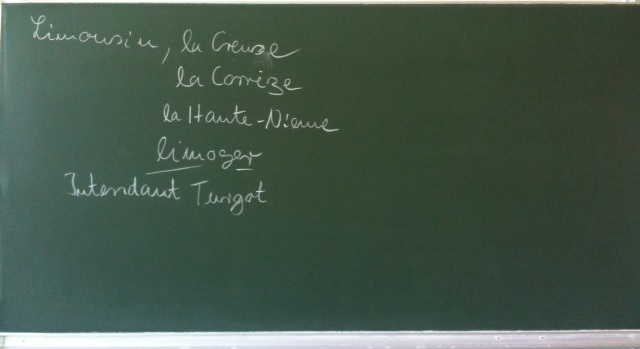 Limousin, la Creuse
la Corrèze
la Haute-Vienne
limoger
Intendant Turgot